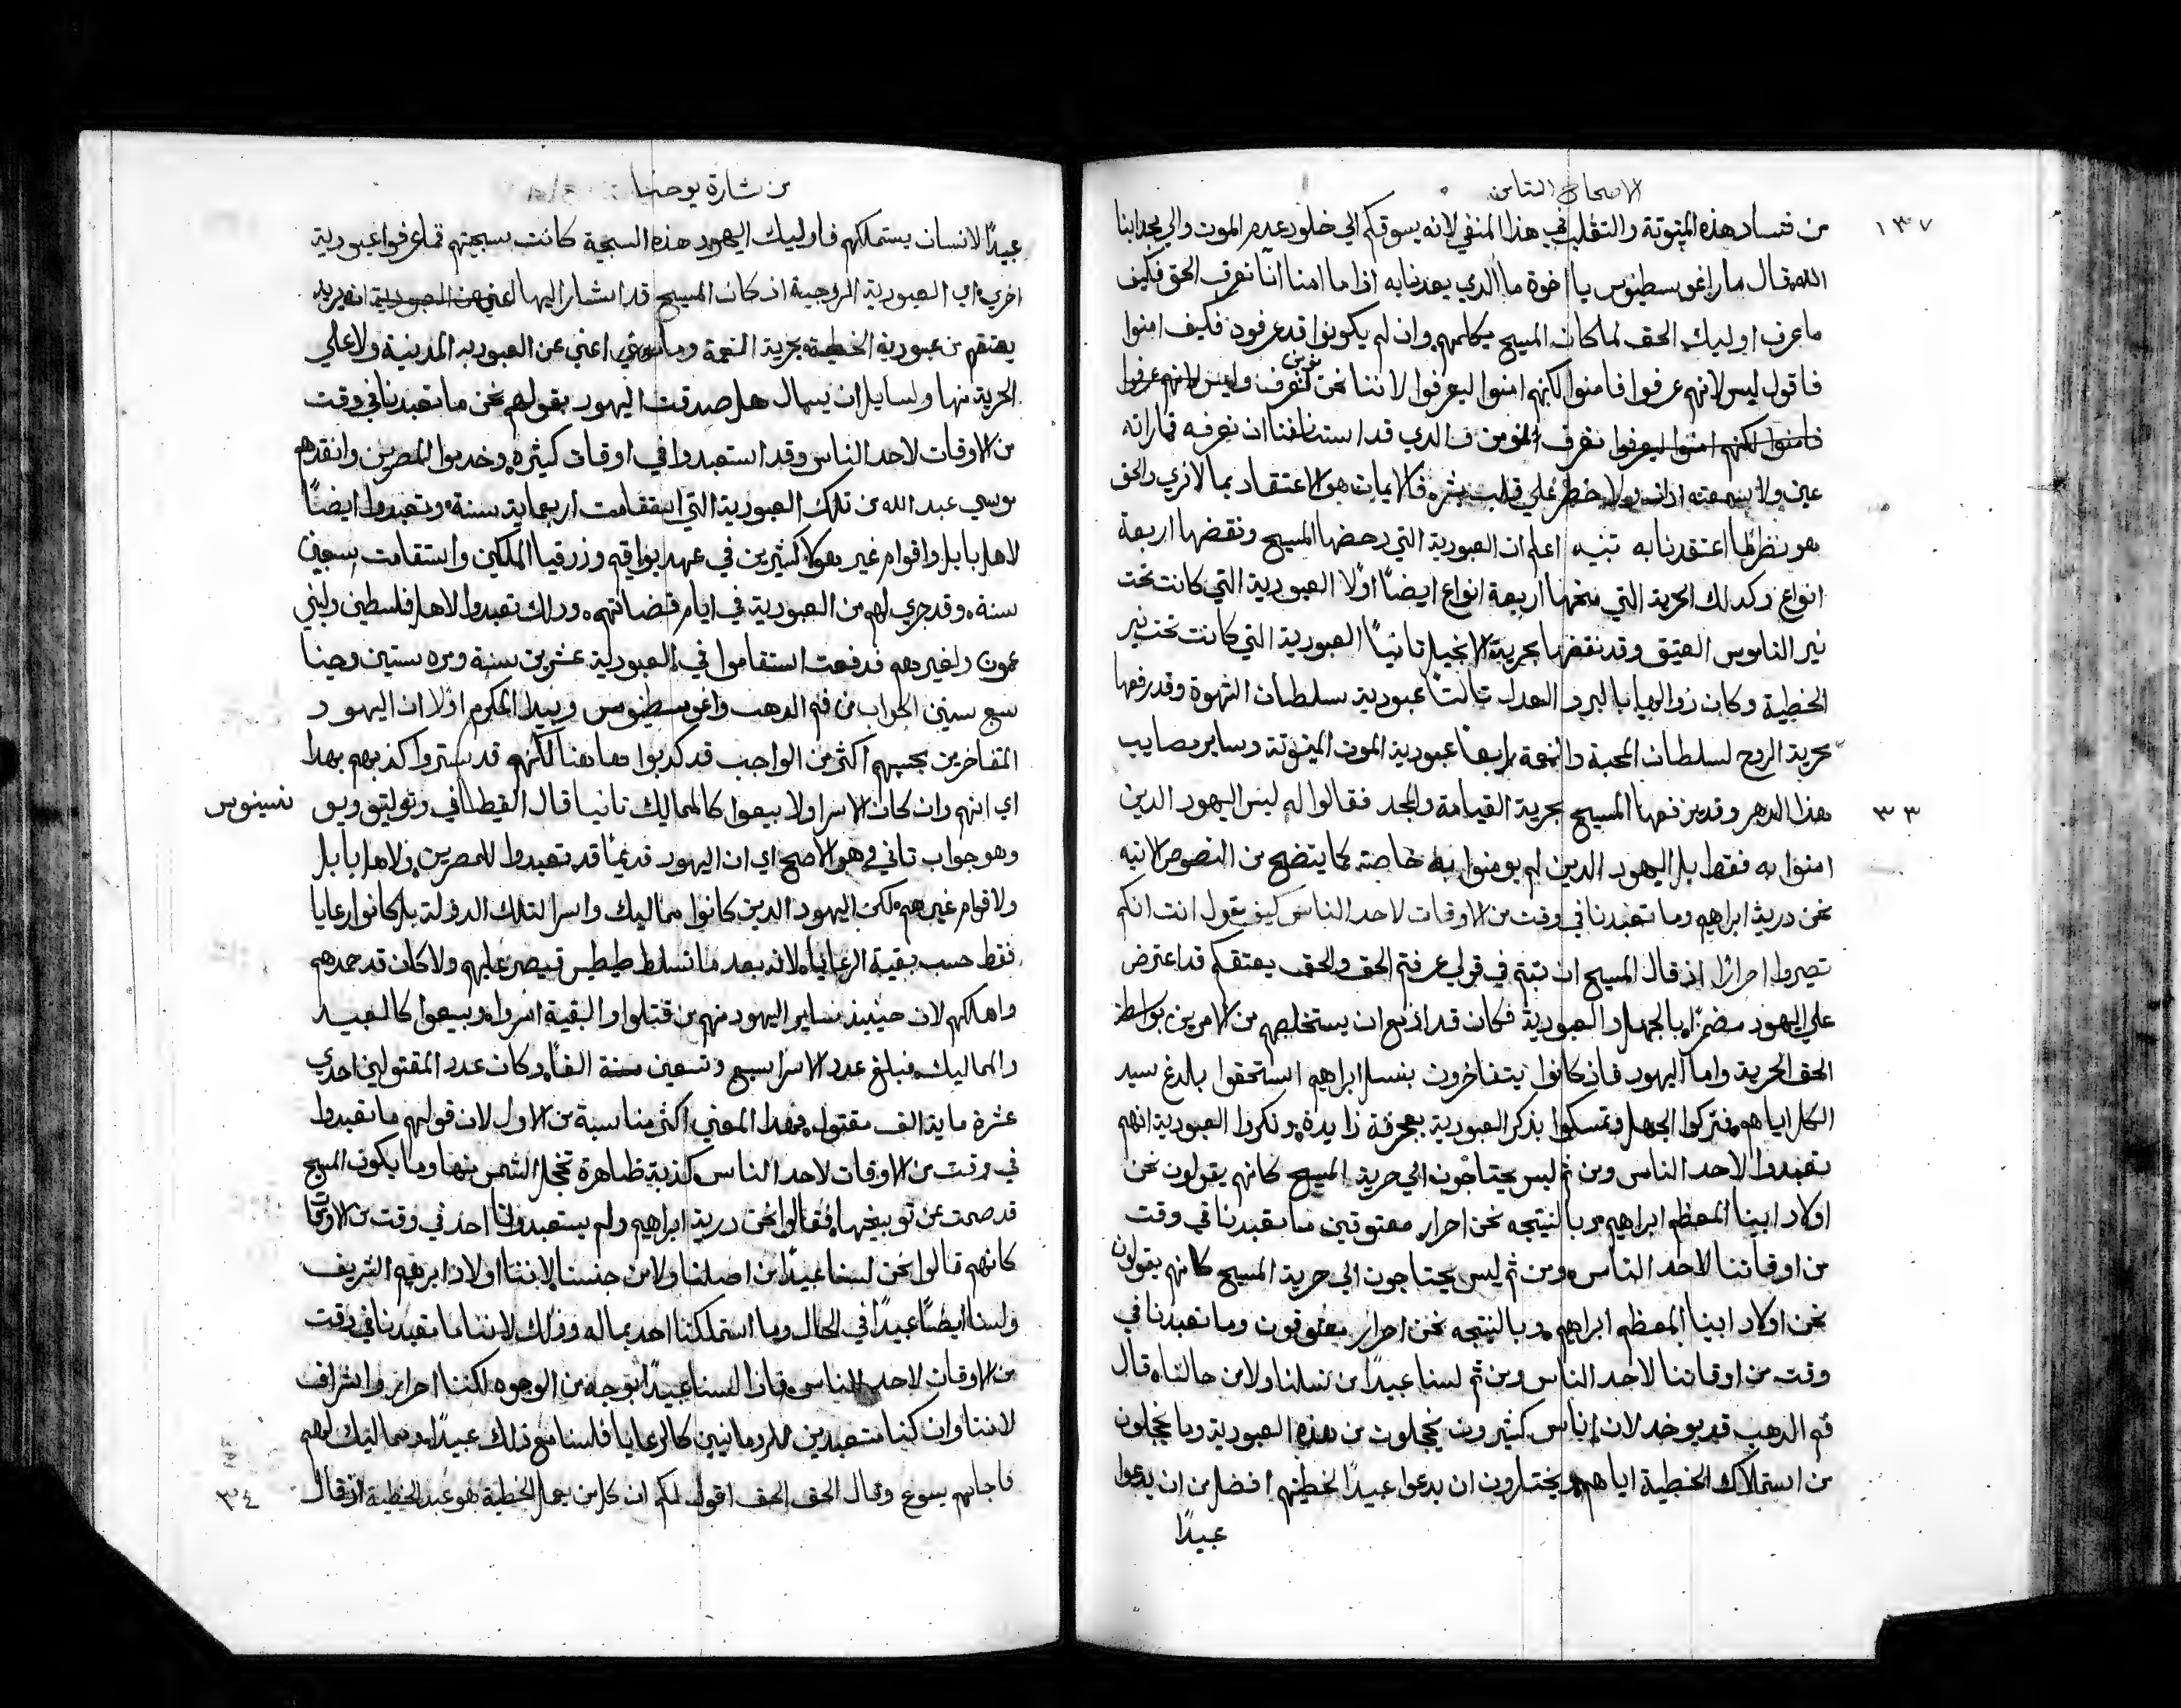 الاصحاح الثامن
١٣٧
من فساد هذه الميتوتة والتقلب في هذا المنفي لانه يسوقكم الي خلود عدم الموت والي مجد ابنا
الله قال مار اغوسطينوس يا اخوة ما الدي يعدنا به اذا ما امنا اننا نعرف الحق فكيف
ما عرف اوليك الحق لما كان المسيح يكلمهم وان لم يكونوا قد عرفوه فكيف امنوا
فاقول ليس لانهم عرفوا فامنوا لكنهم امنوا ليعرفوا لاننا نحن نومن لنعرف وليس لانهم عرفوا
فامنوا لكنهم امنوا ليعرفوا نعرف المومن فالدي قد استنافنا ان نعرفه فما راته
عين ولا سمعته اذان ولا خطر علي قلب بشر فالايمان هو الاعتقاد بما لانري والحق
هو نظر ما اعتقدنا به تنبيه اعلم ان العبودية التي دحضها المسيح ونقضها اربعة
انواع وكدلك الحرية التي منحها اربعة انواع ايضًا اولًا العبودية التي كانت تحت
نير الناموس العتيق وقد نقضها بحرية الانجيل تانيًا العبودية التي كانت تحت نير
الخطية وكان زوالها بالبر والعدل تالتًا عبودية سلطان الشهوة وقد رفعها
بحرية الروح لسلطان المحبة والنعمة رابعًا عبودية الموت الميتوتة وساير مصايب
٣٣
هذا الدهر وقد رفعها المسيح بحرية القيامة والمجد فقالوا له ليس اليهود الدين
امنوا به فقط بل اليهود الدين لم يومنوا به خاصة كما يتضح من النصوص الاتيه
نحن درية ابراهيم وما تعبدنا في وقت من الاوقات لاحد الناس كيف تقول انت انكم
تصيروا احرارًا اذ قال المسيح ان ثبتم في قولي عرفتم الحق والحق يعتقكم قد اعترض
علي اليهود مضمرًا بالجهل والعبودية فكان قد ازمع ان يستخلصهم من الامرين بواسطة
الحق الحرية واما اليهود فاذ كانوا يتفاخرون بنسل ابراهيم استحقوا بالدغ سيد
الكل اياهم فتركوا الجهل وتمسكوا بذكر العبودية بعجرفة زايدة ونكروا العبودية انهم
تعبدوا لاحد الناس ومن ثم ليس يحتاجون الي حرية المسيح كانهم يقولون نحن
اولاد ابينا المعظم ابراهيم وبالنتيجه نحن احرار معتوقين ما تعبدنا في وقت
من اوقاتنا لاحد الناس ومن ثم ليس يحتاجون الي حرية المسيح كانهم يقولون
نحن اولاد ابينا المعظم ابراهيم وبالنتيجه نحن احرار معتوقون وما تعبدنا في
وقت من اوقاتنا لاحد الناس ومن ثم لسنا عبيدًا من نسلنا ولا من حالنا قال
فم الدهب قد يوخد لان اناس كثيرون يخجلون من هذه العبودية وما يخجلون
من استملاك الخطية اياهم ويختارون ان يدعوا عبيدًا لخطيتهم افضل من ان يدعوا
عبيدًا
من شارة يوحنا
عبيدًا لانسان يستملكهم فاوليك اليهود هذه السجية كانت سجيتهم فما عرفوا عبودية
اخري اي العبودية الروحية اذ كان المسيح قد اشار اليها اعني من العبودية انه يريد
يعتقهم من عبودية الخطية بحرية النعمة وما اعني عن العبوديه المدنية ولا علي
الحرية منها ولسايل ان يسال هل صدقت اليهود بقولهم نحن ما تعبدنا في وقت
من الاوقات لاحد الناس وقد استعبدوا في اوقات كثيرة وخدموا المصريين وانقدهم
موسي عبد الله من تلك العبودية التي استقامت اربعماية سنة وتعبدوا ايضًا
لاهل بابل واقوام غير هولا كثيرين في عهد يواقيم وزرقيا الملكين واستقامت سبعين
سنة وقد جري لهم من العبودية في ايام قضاتهم ودلك تعبدوا لاهل فلسطين ولبني
عمون ولغيرهم فدفعت استقاموا في العبودية عشرين سنة ومره ستين وحينا
سبع سنين الجواب من فم الدهب واغوسطينوس وبيدا المكرم اولا ان اليهود
المفاخرين بجنسهم اكثر من الواجب قد كدبوا هاهنا لكنهم قد ستروا كذبهم بهدا
نسينوس
اي انهم وان كان الاسرا ولا بيعوا كالمماليك تانيا قال القيطاني
وهو جواب تاني وهو الاصح اي ان اليهود قديمًا قد تعبدوا للمصريين ولاهل بابل
ولاقوام غيرهم لكن اليهود الدين كانوا مماليك واسرا لتلك الدولة بل كانوا رعايا
فقط حسب بقية الرعايا لانه بعد ما تسلط طيطس قيصر عليهم ولا كان قد حمدهم
واهلكهم لان حينيد ساير اليهود منهم من قتلوا والبقية اسروا وبيعوا كالعبيد
والمماليك فبلغ عدد الاسرا سبع وتسعين الفًا وكان عدد المقتولين احدي
عشرة ماية الف مقتول فهدا المعني اكثر مناسبة من الاول لان قولهم ما تعبدوا
في وقت من الاوقات لاحد الناس كذبة ظاهرة تخجل الشمس منها وما يكون المسيح
قد صمت عن توبيخها فقالوا نحن درية ابراهيم ولم يستعبدوننا احد في وقت من الاوقات
كانهم قالوا نحن لسنا عبيدًا من اصلنا ولا من جنسنا لاننا اولاد ابرهيم الشريف
ولسنا ايضًا عبيدًا في الحال وما استملكنا احد بماله وذلك لاننا ما تعبدنا في وقت
من الاوقات لاحد الناس فاذا لسنا عبيدًا بوجه من الوجوه لكننا احرار واشراف
لاننا وان كنا متعبدين للرومانيين كالرعايا فلسنا مع ذلك عبيدًا ومماليك لهم
٣٤
فاجابهم يسوع وقال الحق الحق اقول لكم ان كل من يعمل الخطية هو عبد الخطية اذ قال